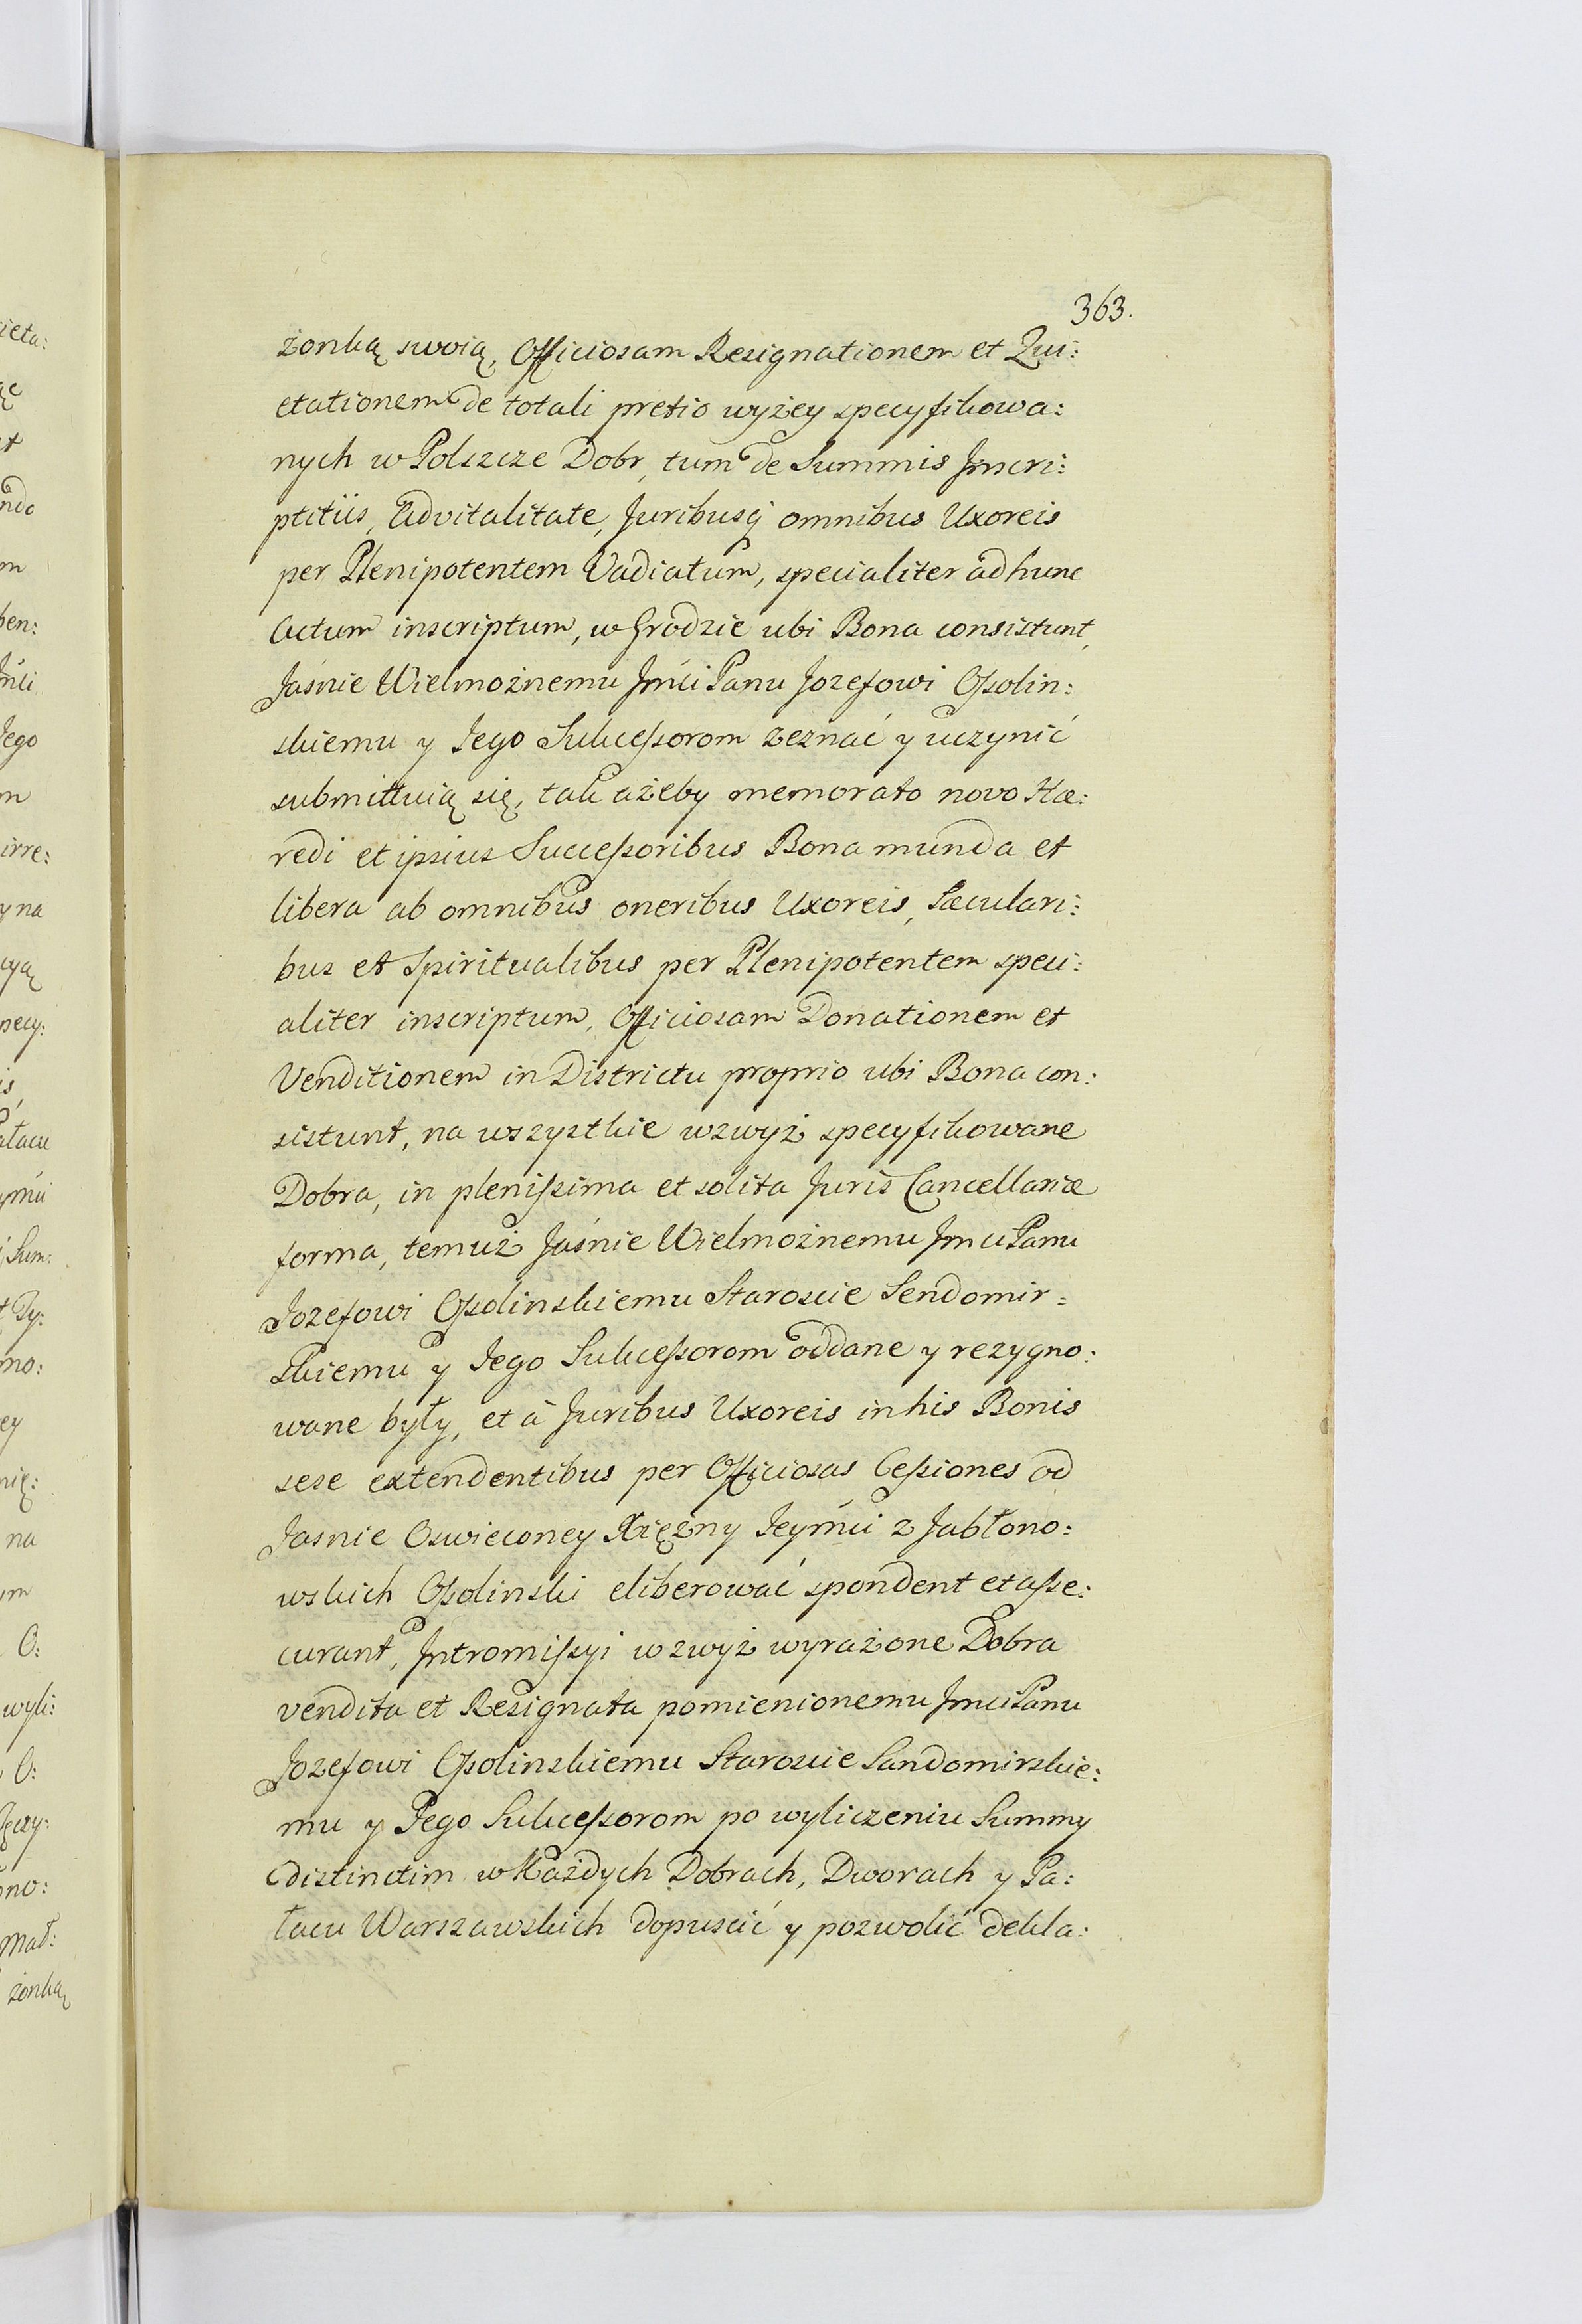 363.
żonką swoią, Officiosam Resignationem et Qui:
etationem de totali pretio wyżey specyfikowa:
nych w Polszcze Dobr, tum de Summis Jnscri:
ptitiis, Advitalitate, Juribusq́ omnibus Uxoreis
per Plenipotentem Vadiatum, specialiter ad hunc
Actum inscriptum, w Grodzie ubi Bona consistunt,
Jaśnie Wielmożnemu Jmći Panu Jozefowi Ossolin:
skiemu y Jego Sukcessorom zeznać y uczynić
submittuią się, tak ażeby memorato novo Hæ:
redi et ipsius Successoribus Bona munda et
libera ab omnibus oneribus Uxoreis, Sæculari:
bus et Spiritualibus per Plenipotentem speci:
aliter inscriptum, Officiosam Donationem et
Venditionem in Districtu proprio ubi Bona con:
sistunt, na wszystkie wzwyż specyfikowane
Dobra, in plenissima et solita Juris Cancellariæ
forma, temuż Jaśnie Wielmożnemu Jmci Panu
Jozefowi Ossolinskiemu Staroscie Sendomir:
skiemu y Jego Sukcessorom oddane y rezygno:
wane były, et à Juribus Uxoreis in his Bonis
sese extendentibus per Officiosas Cessiones od
Jasnie Oswieconey Xiężny Jeymći z Jabłono:
wskich Ossolinski eliberować spondent et asse:
curant, Jntromissyi w zwyż wyrażone Dobra
vendita et Resignata pomienionemu Jmci Panu
Jozefowi Ossolinskiemu Staroscie Sandomirskie:
mu y Jego Sukcessorom po wyliczeniu Summy
distinctim w Każdych Dobrach, Dworach y Pa:
łacu Warszawskich dopuscić y pozwolić dekla: